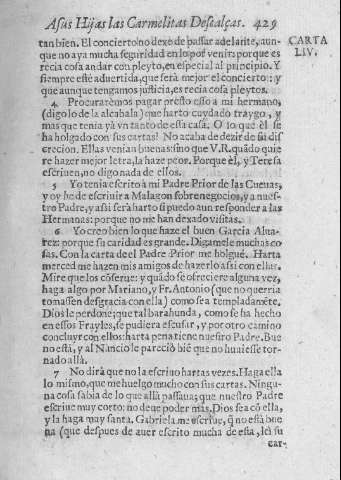 A sus Hijas las Carmelitas Descalças. 429
CARTA
LIV.
tan bien. El concierto no dexe de passar adelante, aun-
que no aya mucha seguridad en lo por venir: porque es
recia cosa andar con pleyto, en especial al principio. Y
siempre esté advertida, que será mejor el concierto: y
que aunque tengamos justicia, es recia cosa pleytos.
4. Procuraremos pagar presto esso a mi hermano,
(digo lo de la alcabala) que harto cuydado traygo, y
mas que tenia yà vn tanto de essa casa. O lo que èl se
ha holgado con sus cartas! No acaba de dezir de su dis
crecion. Ellas venian buenas: sino que V.R. quãdo quie
re hazer mejor letra, la haze peor. Porque èl, y Teresa
escriuen, no digo nada de ellos.
5 Yo tenia escrito à mi Padre Prior de las Cueuas,
y oy he de escriuir a Malagon sobre negocios, y a nues-
tro Padre, y assi serà harto si puedo aun responder a las
Hermanas: porque no me han dexado visitas.
6 Yo creo bien lo que haze el buen Garcia Alua-
rez: porque su caridad es grande. Digamele muchas co
sas. Con la carta de el Padre Prior me holguè. Harta
merced me hazen mis amigos de hazerlo assi con ellas.
Mire que los cõserue: y quãdo se ofreciere alguna vez,
haga algo por Mariano, y Fr. Antonio (que no querria
tomassen desgracia con ella) como sea templadamẽte.
Dios le perdone; que tal barahunda, como se ha hecho
en essos Frayles, se pudiera escusar, y por otro camino
concluyr con ellos: harta pena tiene nuestro Padre. Bue
no està, y al Nuncio le pareciò biẽ que no huuiesse tor-
nado allà.
7 No dirà que no la escriuo hartas vezes. Haga ella
lo mismo, que me huelgo mucho con sus cartas. Ningu-
na cosa sabia de lo que allà passaua; que nuestro Padre
escriue muy corto: no deue poder mas. Dios sea cõ ella,
y la haga muy santa. Gabriela me escriue, q̃ no està bue
na (que despues de auer escrito mucha de esta, leì su
car-